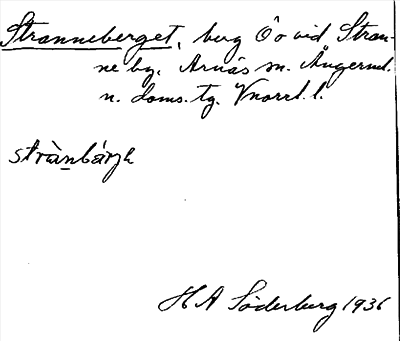 Stranneberget, berg Ö o vid Stran-
ne by, Arnäs sn. Ångerml.
n. doms. tg. Vnorrl. l.
strànbárjə
H A Söderberg 1936